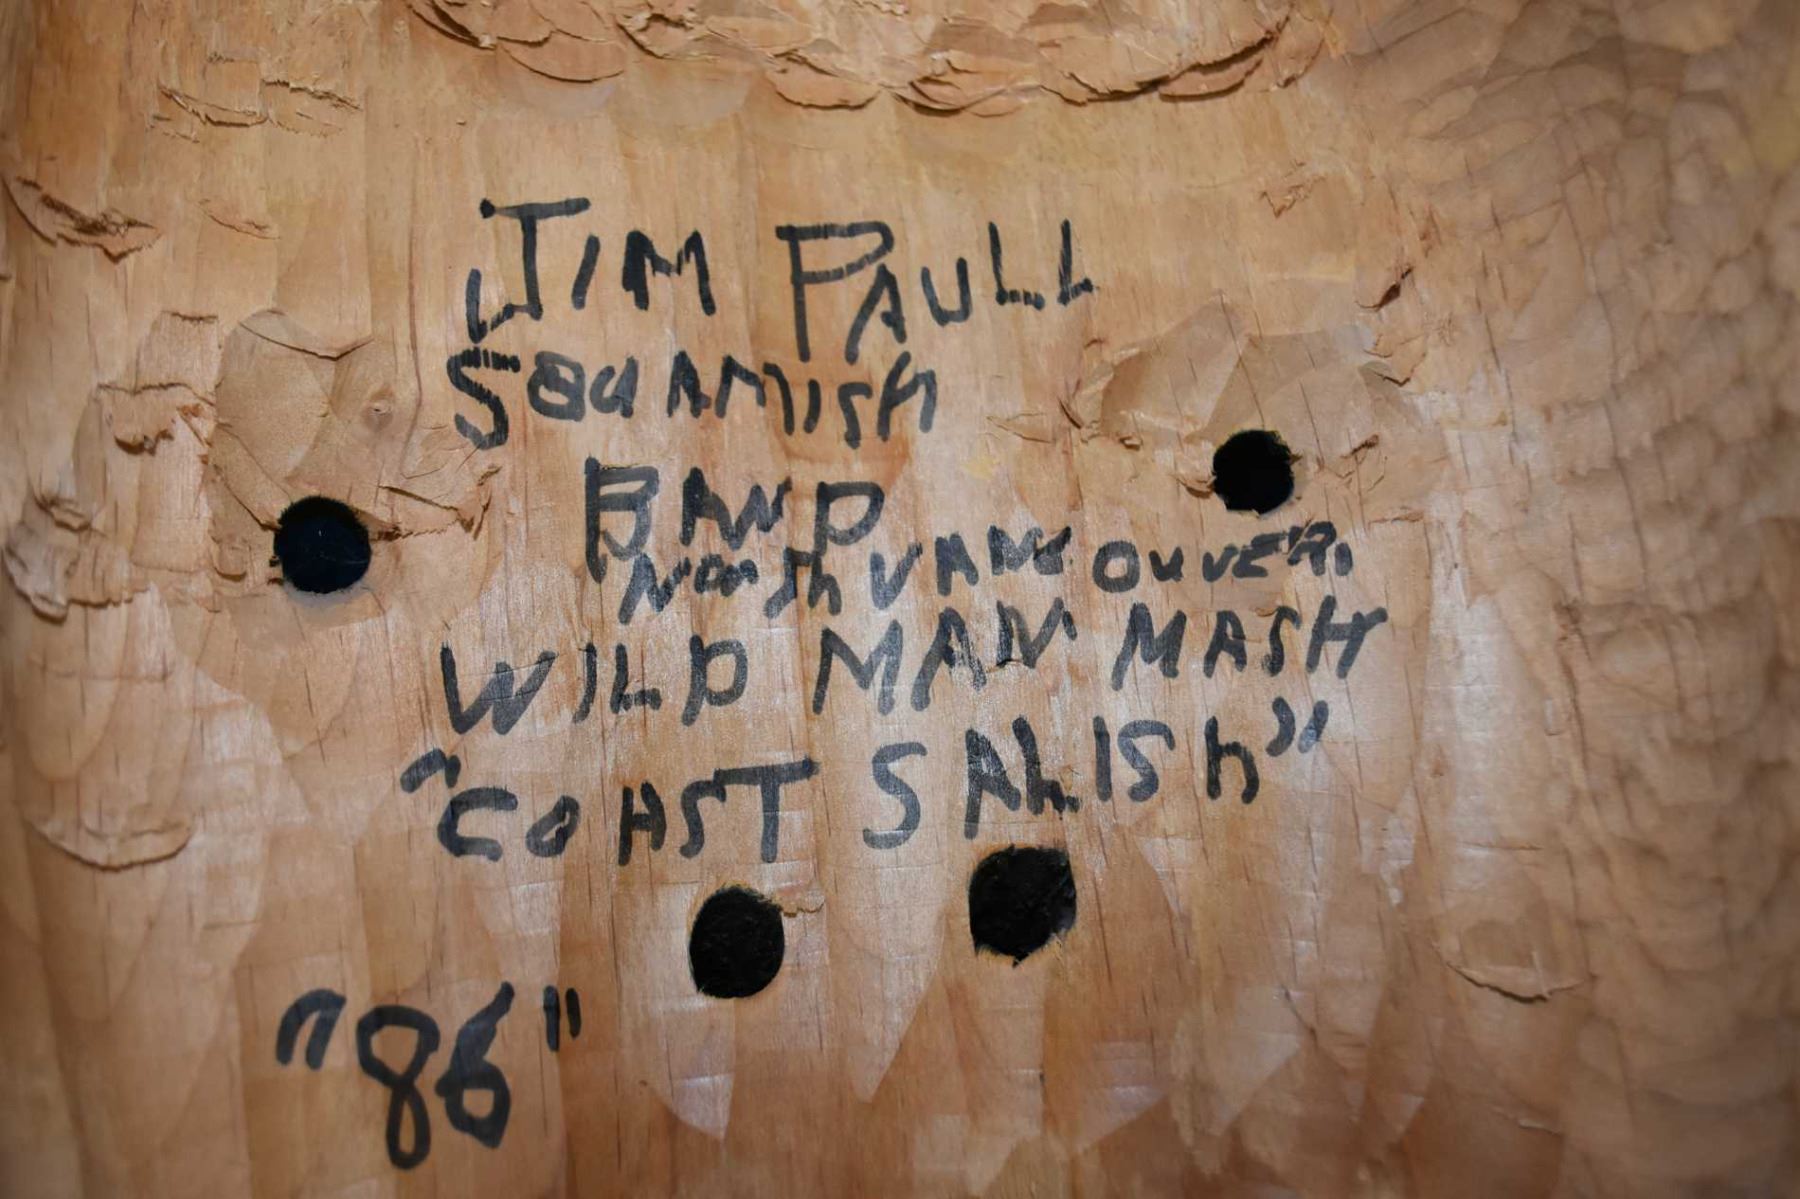 JIM PAULL
SQUAMISH
BAND
North VANCOUVER.
WILD MAN MASH
"COAST SALISh"
"86"